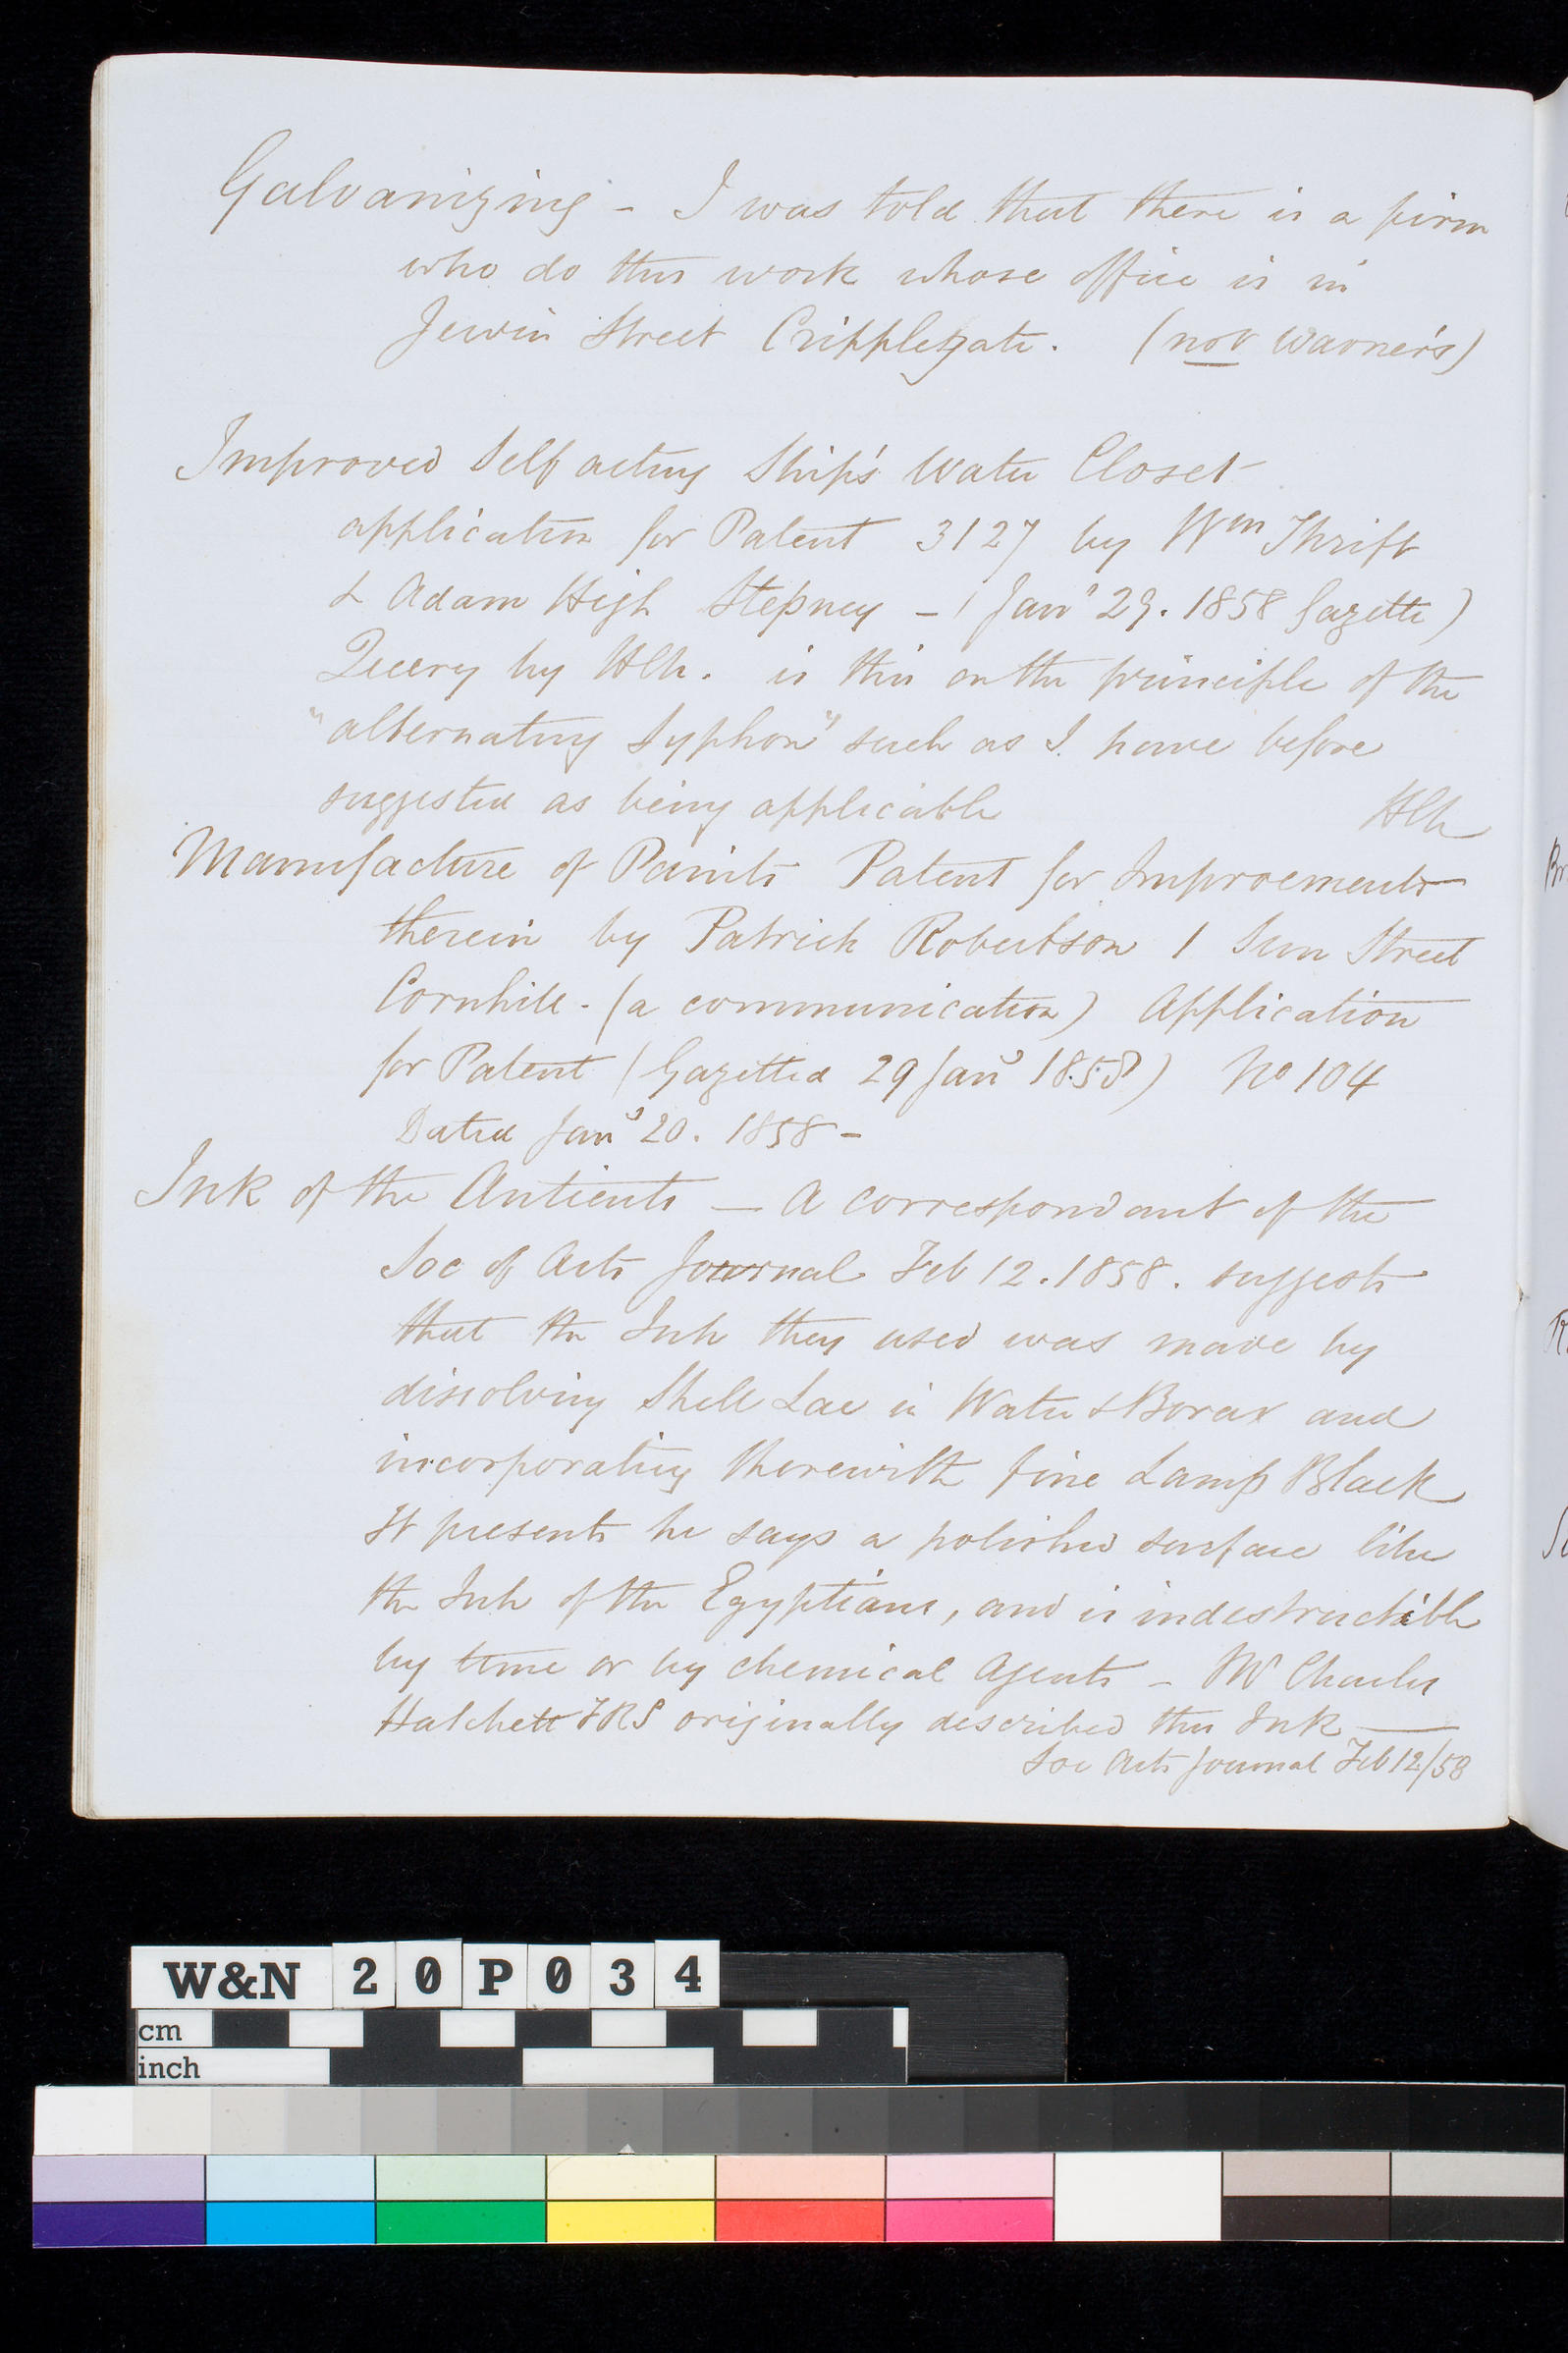 Galvanizing - I was told that there is a firm
who do this work whose office is in
Jewin Street Cripplegate. (not Warner's)
Improved Self acting Ship's Water Closet
application for Patent 3127 by Wm Thrift
& Adam High Stepney - (Jany 29. 1858 Gazette)
Query by HCN. is this on the principle of the
"alternating Syphon" such as I have before
suggested as being applicable
Manufacture of Paints Patent for Improements
therein by Patrick Robertson 1 Sun Street
Cornhill - (a communication) Application
for Patent (Gazetted 29 Jany 1858) No 104
Dated Jany 20. 1858 -
Ink of the Antients - A correspondant of the
Soc of Arts Journal Feb 12. 1858. suggests
that the Ink they used was made by
dissolving Shell Lac in Water & Borax and
incorporating therewith fine Lamp Black
It presents he says a polished surface like
the Ink of the Egyptians, and is indestructible
by time or by chemical Agents - Mr Charles
Hatchett FRS originally described this Ink
Soc Arts Journal Feb 12/58
W&N 20P034
cm
inch